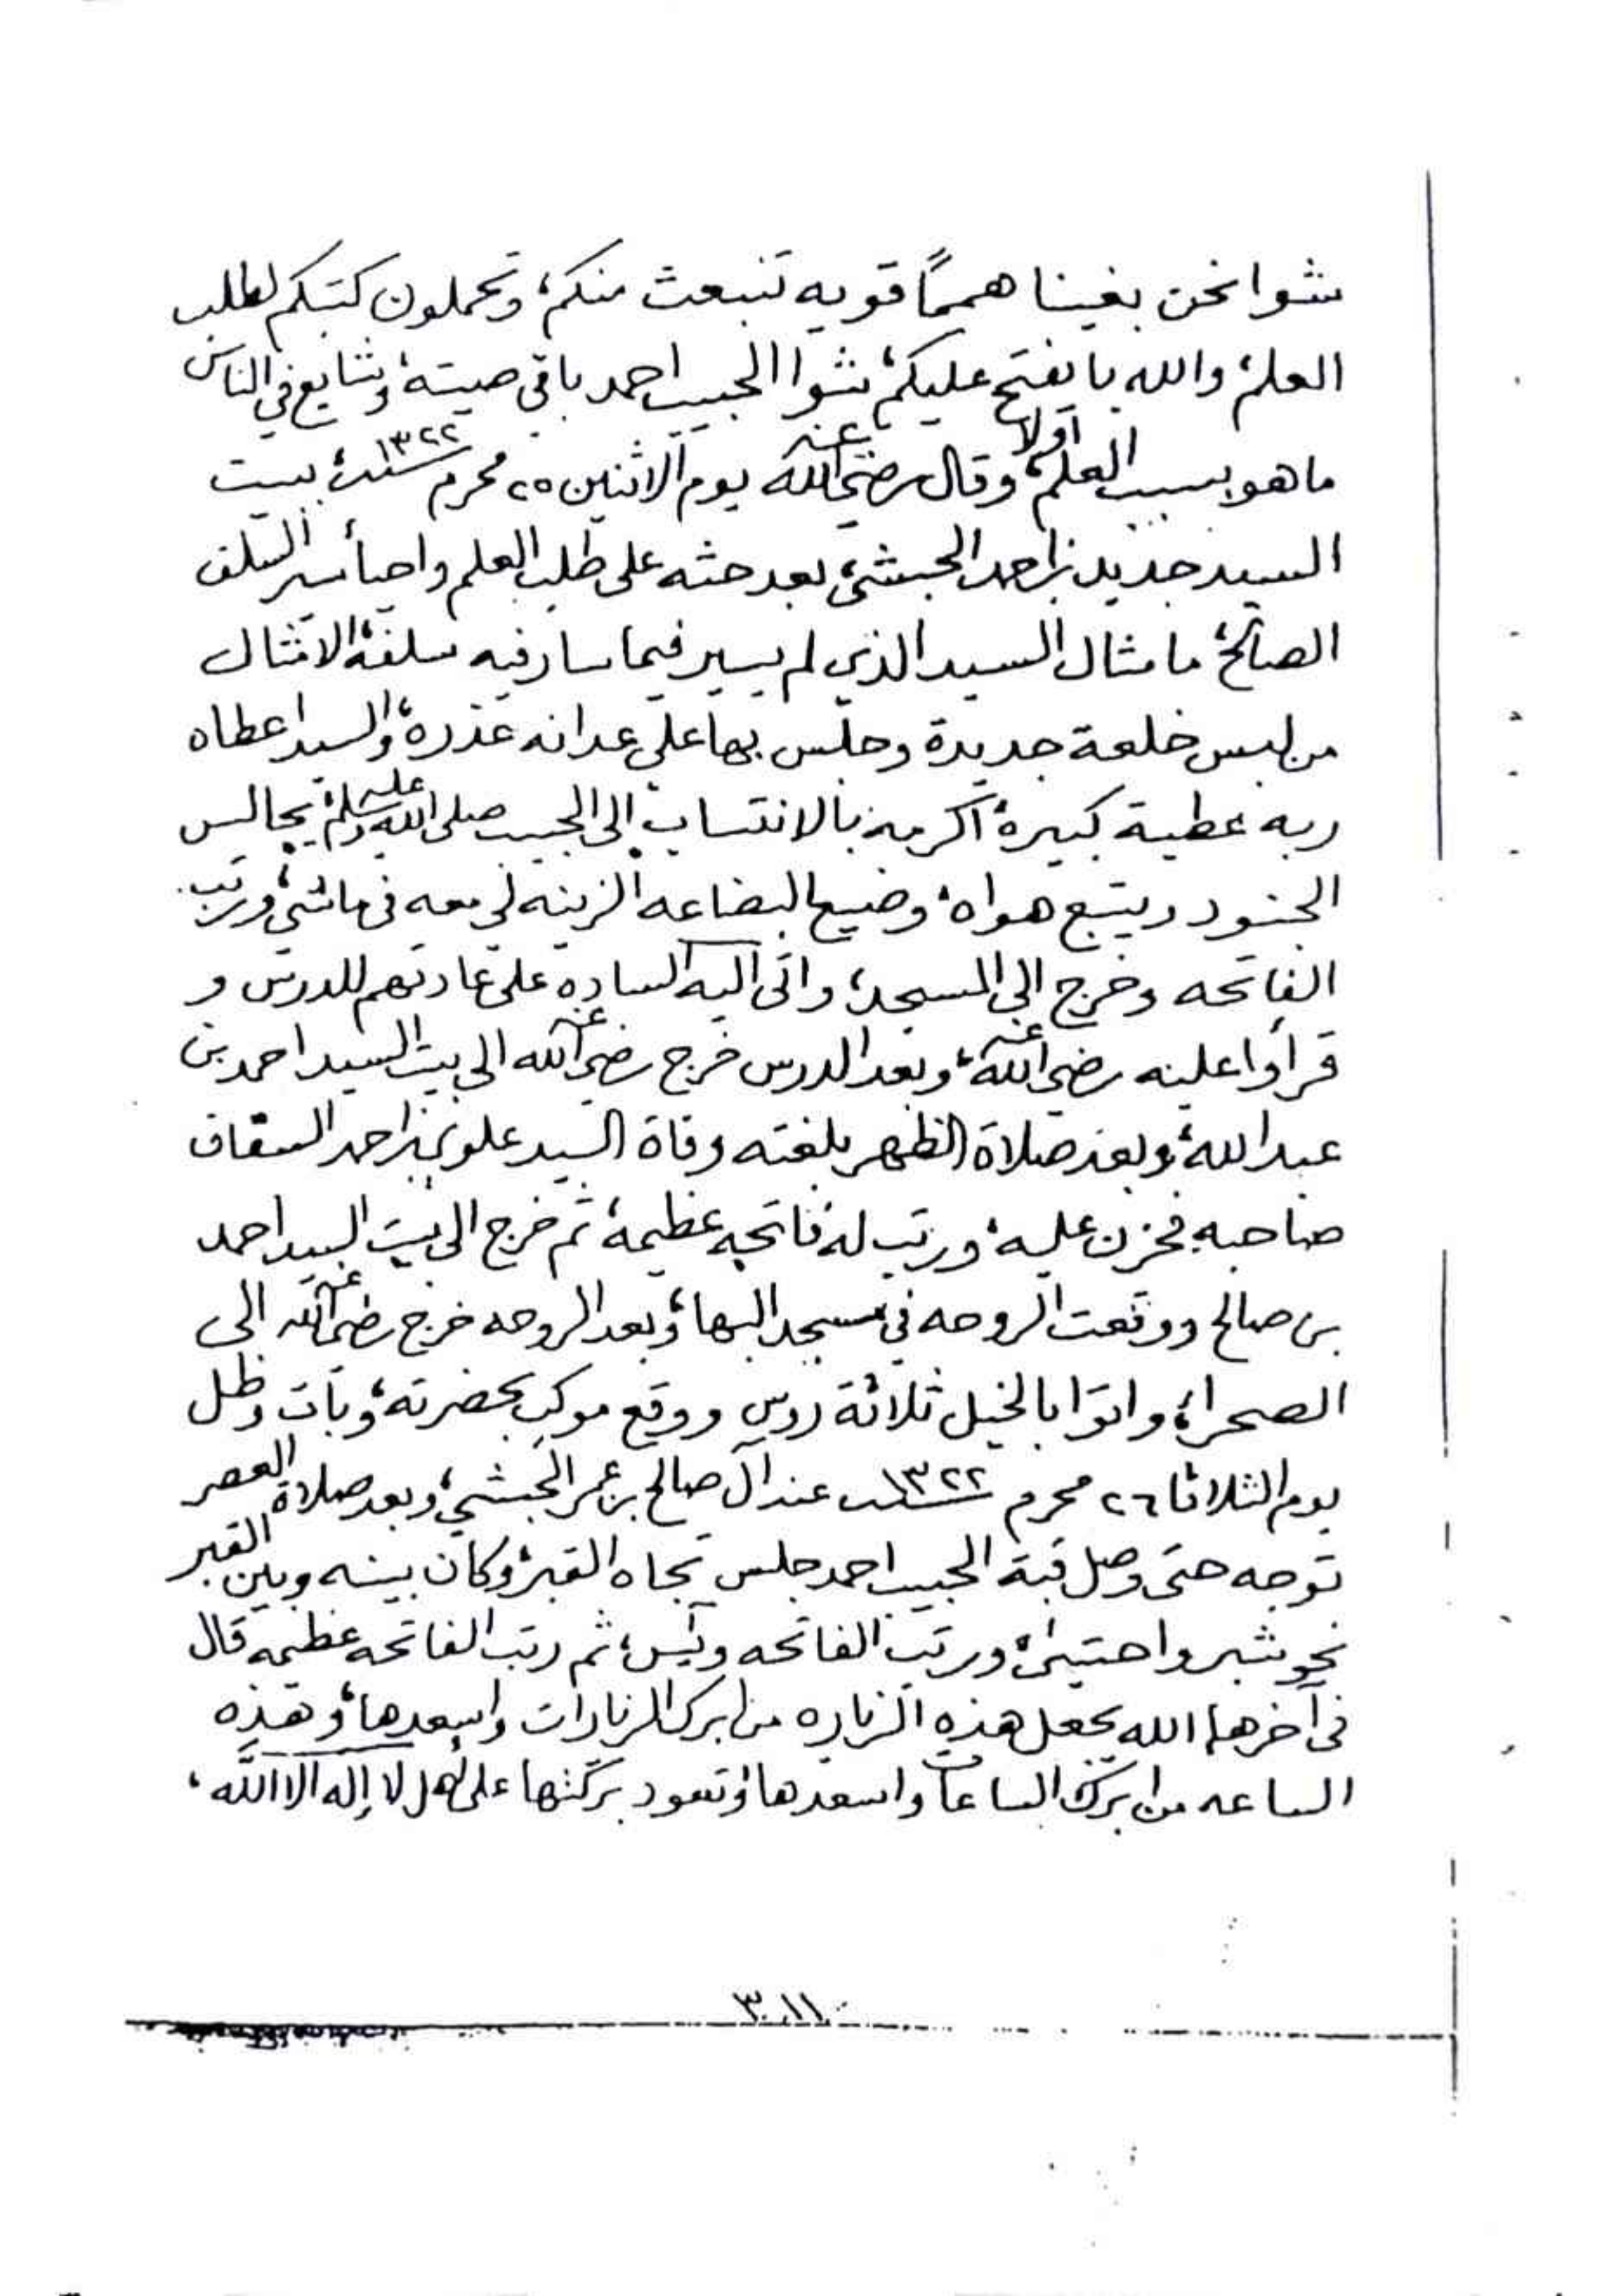 شوا نحن بغينا همماً قويه تنبعث منكم، وتحملون كتبكم لطلب
العلم، والله با يفتح عليكم، شوا الحبيب احمد باقي صيته، وشايع في الناس
ما هو بسبب العلم أولا، وقال رضي الله عنه يوم الاثنين ٢٥ محرم سنة ١٣٢٢، ببيت
السيد جديد بن احمد الحبشي، بعد حثه على طلب العلم واحيأ سير السلف
الصالح، ما مثال السيد الذي لم يسير فيما سار فيه سلفه، الا مثال
من لبس خلعة جديدة وجلس بها على عدانه عذره، والسيد اعطاه
ربه عطية كبيرة، اكرمه بالانتساب الى الحبيب صلى الله عليه وسلم، يجالس
الجنود ويتبع هواه، وضيع البضاعه الزينه لي معه في ماشي، ورتب
الفاتحه وخرج الى المسجد، واتى اليه الساده على عادتهم للدرس و
قرأوا عليه رضي الله عنه، وبعد الدرس خرج رضي الله عنه الى بيت السيد احمد بن
عبد الله، وبعد صلاة الظهر بلغته وفاة السيد علوي بن احمد السقاف
صاحبه فحزن عليه، ورتب له فاتحه عظيمة، ثم خرج الى بيت السيد احمد
بن صالح ووقعت الروحه في مسجد البهاء، وبعد الروحه خرج رضي الله عنه الى
الصحراء، واتوا بالخيل ثلاثة روس ووقع موكب بحضرته، وبات وظل
يوم الثلاثا ٢٦ محرم سنة ١٣٢٢ عند آل صالح بن عمر الحبشي، وبعد صلاة العصر
توجه حتى وصل قبة الحبيب احمد جلس تجاه القبر، وكان بينه وبين القبر
نحو شبر واحتبى، ورتب الفاتحه ويس، ثم رتب الفاتحه عظيمه قال
في آخرها الله يجعل هذه الزياره من ابرك الزيارات واسعدها، وهذه
الساعه من ابرك الساعات واسعدها، وتعود بركتها على اهل لا إله الا الله،
٣٠١١